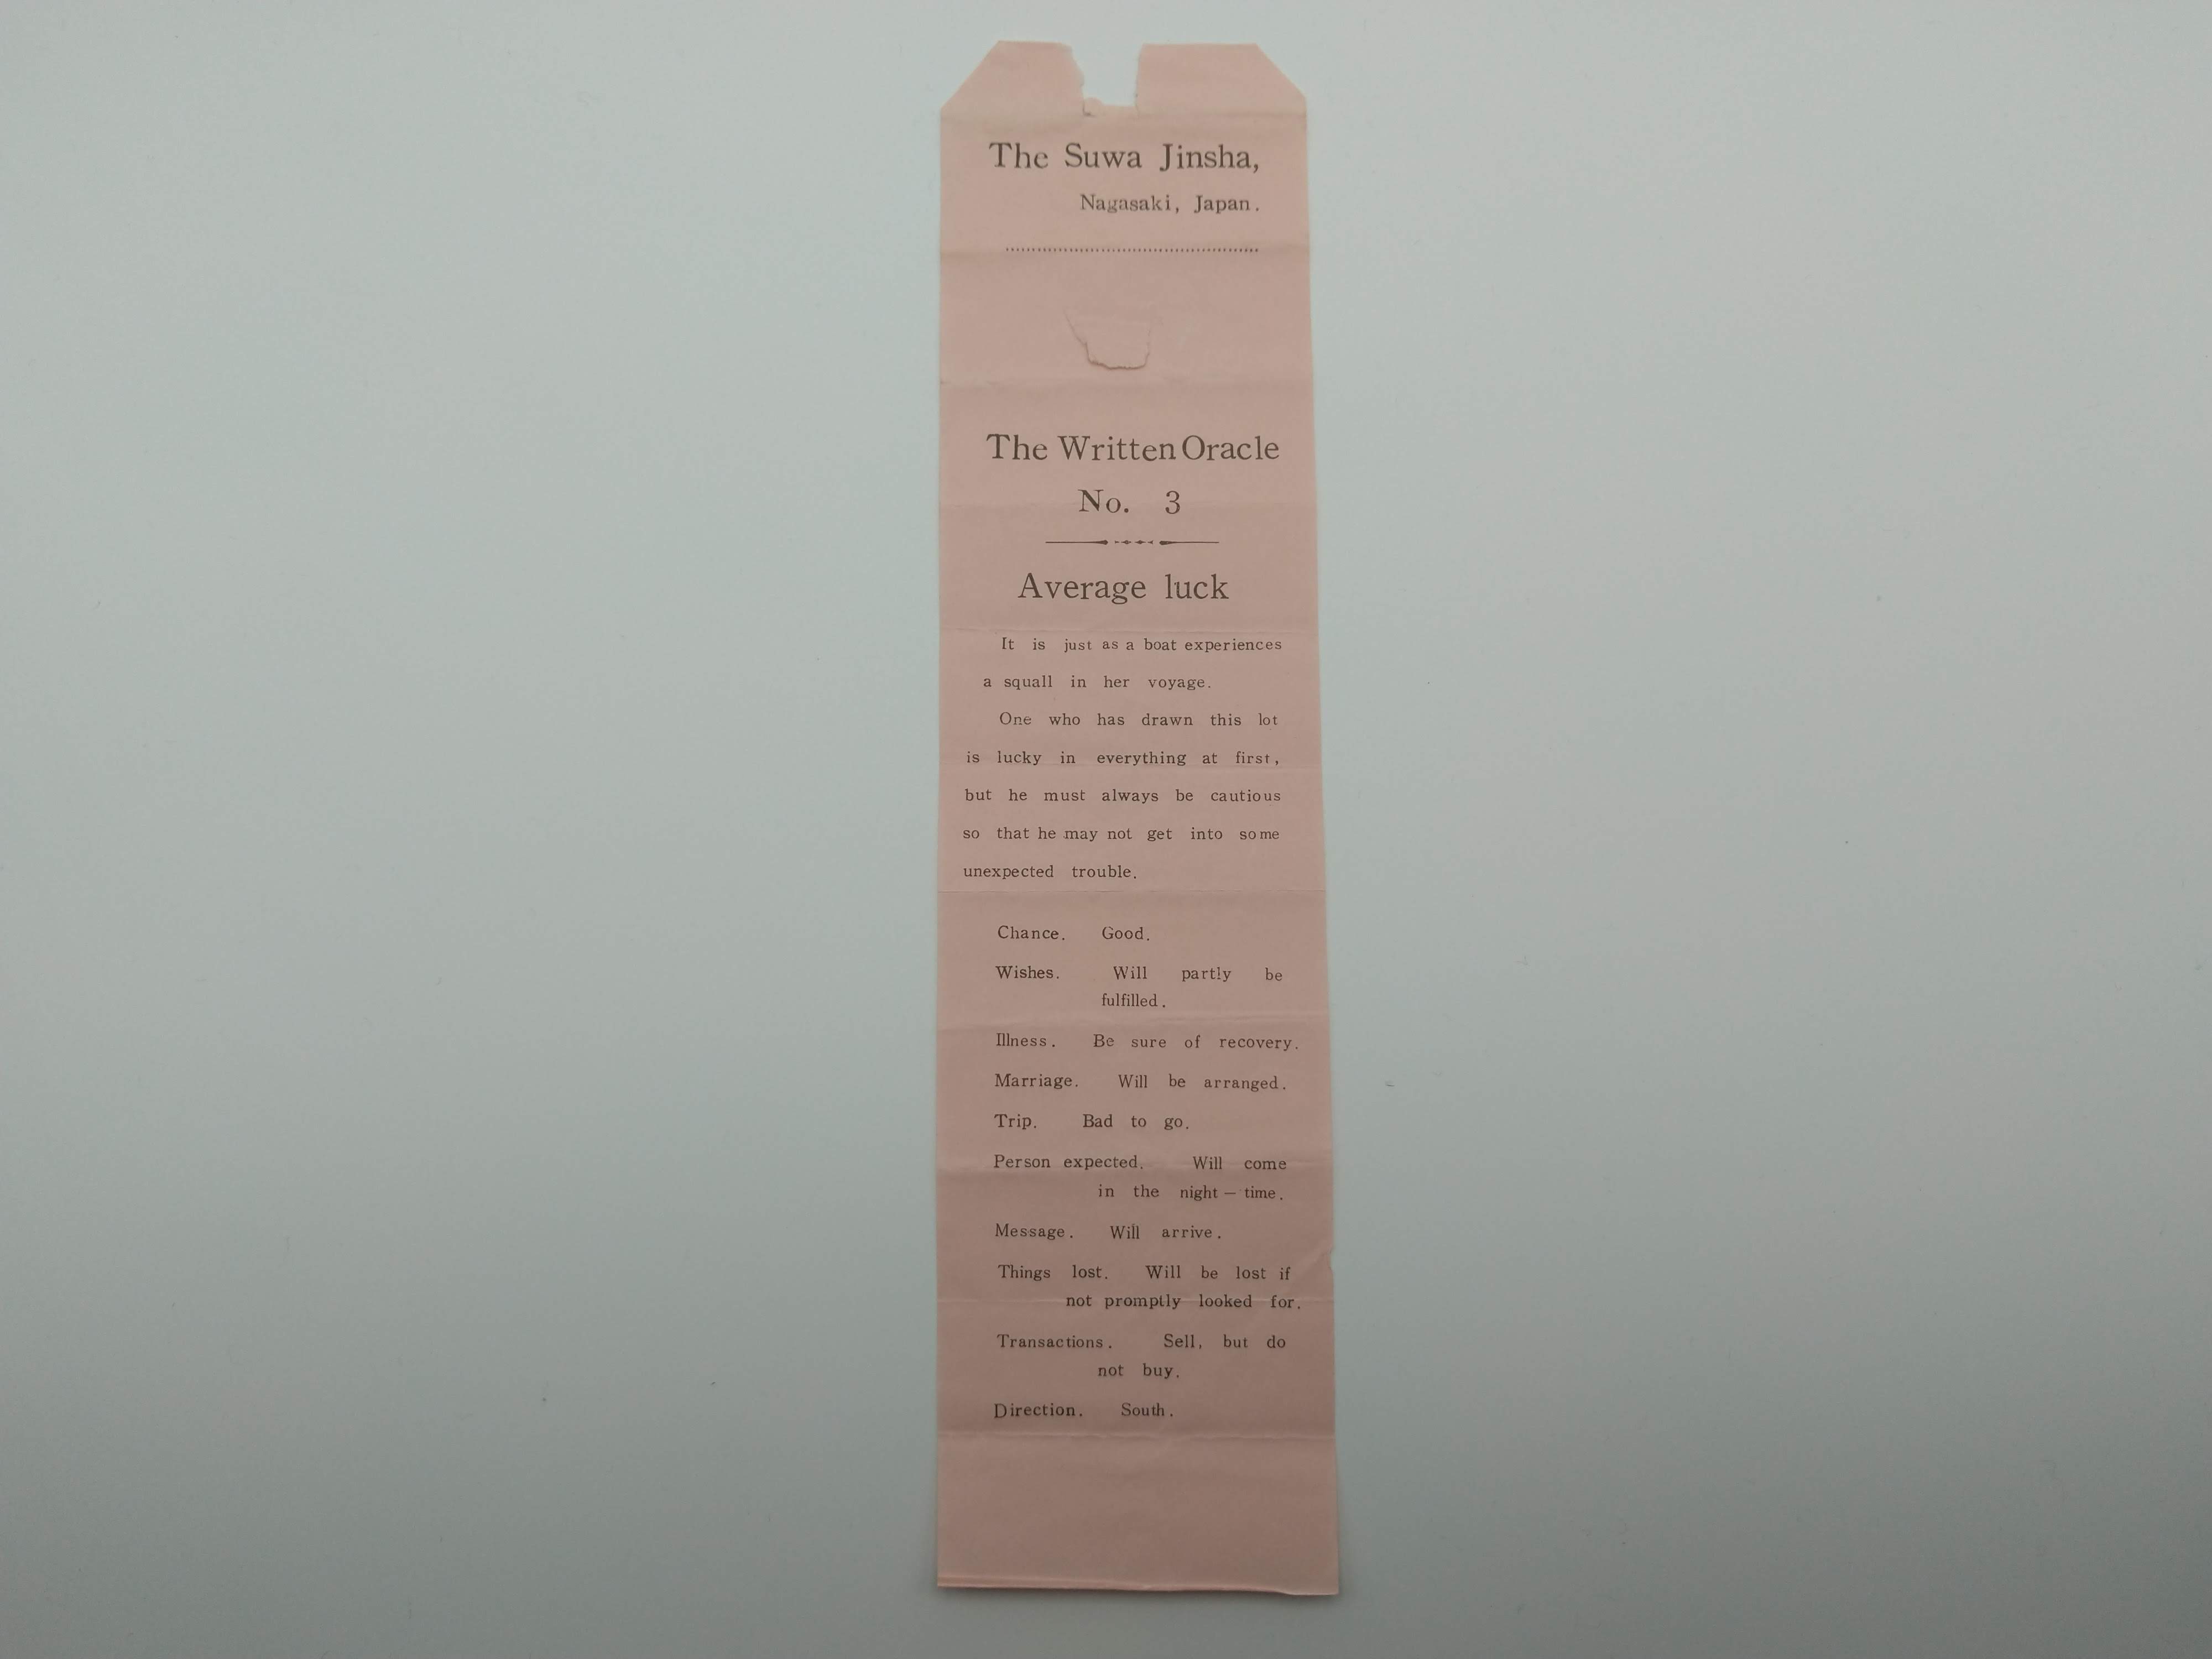 The Suwa Jinsha,
Nagasaki, Japan.
The Written Oracle
No. 3
Average luck
It is just as a boat experiences
a squall in her voyage.
One who has drawn this lot
is lucky in everything at first,
but he must always be cautious
so that he may not get into some
unexpected trouble.
Chance. Good.
Wishes. Will partly be
fulfilled.
Illness. Be sure of recovery.
Marriage. Will be arranged.
Trip. Bad to go.
Person expected. Will come
in the night — time.
Message. Will arrive.
Things lost. Will be lost if
not promptly looked for.
Transactions. Sell, but do
not buy.
Direction. South.